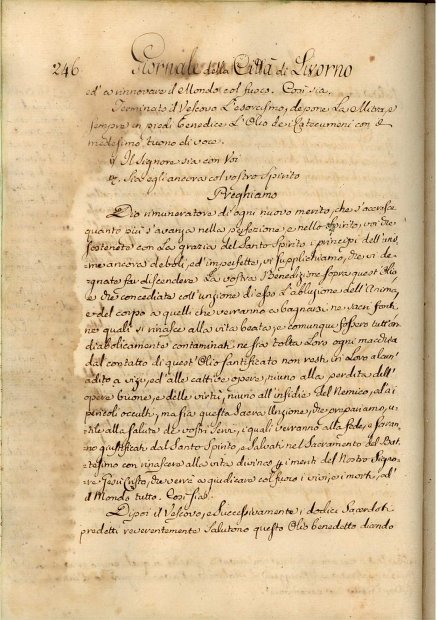 246 Giornale della Città di Livorno
ed' a rinnovare il Mondo col fuoco. Così sia.
Terminato il Vescovo L'esorcismo, depone La Mitra, e
sempre in piedi benedice L'Olio dei Catecumeni con il
medesimo tuono di voce.
℣. Il Signore sia con Voi
℟. Sia egli ancora col vostro Spirito
Preghiamo
Dio rimuneratore di ogni nuovo merito, che s'accresce
quanto più s'avanza nella perfezione, e nello spirito, voi che
sostenete con La grazia del Santo Spirito i principj dell'ani=
me ancora deboli, ed'imperfette, vi supplichiamo, che vi de=
gnate far discendere La vostra Benedizione sopra quest'Olio,
e che concediate coll'unzione di esso L'abluzione dell'Anima,
e del corpo a quelli che verranno a bagnarsi ne sacri fonti,
ne quali si rinasce alla vita beata, e comunque fossero tutt'ora
diabolicamente contaminati, ne sia tolta Loro ogni macchia
dal contatto di quest'Olio santificato non resti in Loro alcun'
adito a vizj, ed'alle cattive opere, niuno alla perdita dell'
opere buone, e delle virtù, niuno all'insidie del Nemico, ed ai
pericoli occulti, ma sia questa Sacra Unzione, che prepariamo, u=
tile alla salute de vostri Servi, i quali verranno alla fede, e saran=
no giustificati dal Santo Spirito, e Salvati nel Sacramento del Bat=
tesimo con rinascere alla vita divina, per i meriti del Nostro Signo=
re Gesù Cristo, che verrà a giudicare col fuoco i vivi, e i morti, ed'
il Mondo tutto. Così sia.
Dipoi il Vescovo, e successivamente i dodici Sacerdoti
predetti reverentemente salutono questo Olio benedetto dicendo